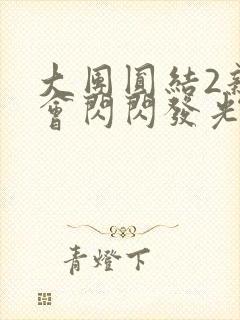 大團圓結2
會閃閃發光
青燈下